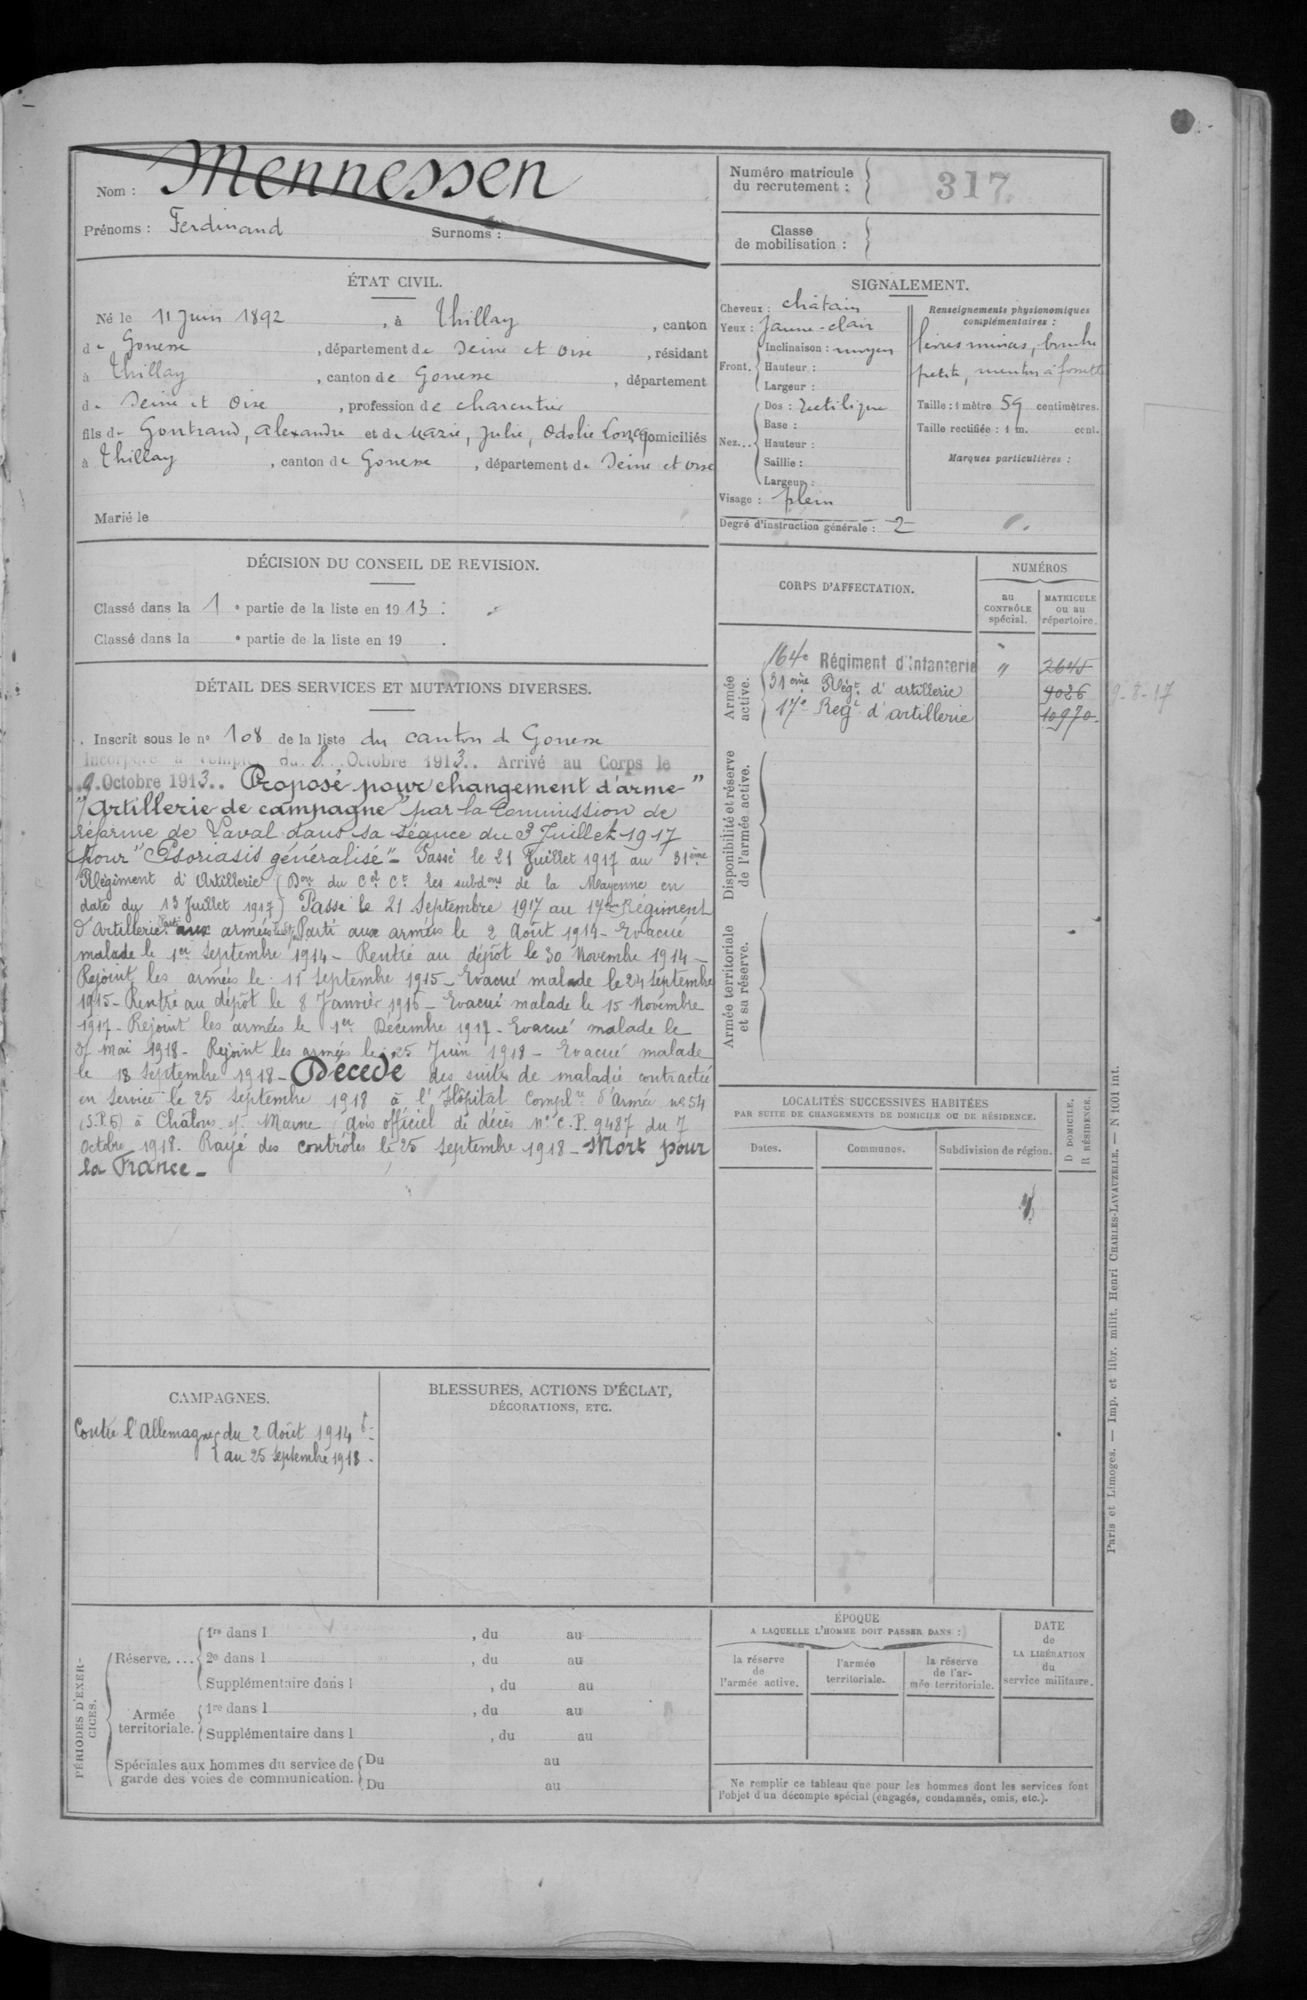 Nom : Mennessen
Prénoms : Ferdinand Surnoms :
Numéro matricule
du recrutement :
317
Classe
de mobilisation :
ÉTAT CIVIL.
Né le 11 Juin 1892, à Thillay, canton
de Gonesse, département de Seine et Oise, résidant
à Thillay, canton de Gonesse, département
de Seine et Oise, profession de charcutier
fils de Gontrand, Alexandre et de Marie, Julie, Odolie domiciliés
à Thillay, canton de Gonesse, département de Seine et Oise
Marié le
SIGNALEMENT.
Cheveux : châtain
Yeux : Jaune-clair
Front. Inclinaison : moyen
Hauteur :
Largeur :
Nez... Dos : Rectiligne
Base :
Hauteur :
Saillie :
Largeur :
Visage : plein
Renseignements physionomiques
complémentaires :
lèvres minces, bouche
petite, menton à fossette
Taille : 1 mètre 59 centimètres.
Taille rectifiée : 1 m. cent.
Marques particulières :
Degré d'instruction générale : 2
DÉCISION DU CONSEIL DE REVISION.
Classé dans la 1e partie de la liste en 1913.
Classé dans la e partie de la liste en 19 .
DÉTAIL DES SERVICES ET MUTATIONS DIVERSES.
Inscrit sous le no 108 de la liste du canton de Gonesse
Incorporé à compter du 8 Octobre 1913.. Arrivé au Corps le
9 Octobre 1913.. Proposé pour changement d'arme "
"Artillerie de campagne" par la Commission de
réforme de Laval dans sa séance du 3 Juillet 1917
pour "Psoriasis généralisé" - Passé le 21 Juillet 1917 au 31ème
Régiment d'Artillerie (Don du Cel Ct les subdons de la Mayenne en
date du 13 Juillet 1917) Passé le 21 Septembre 1917 au 17ème Régiment
d'Artillerie. aux armées Parti aux armées le 2 Août 1914 - Evacué
malade le 1er Septembre 1914 - Rentré au dépôt le 30 Novembre 1914 -
Rejoint les armées le 11 Septembre 1915 - Evacué malade le 24 Septembre
1915 - Rentré au dépôt le 8 Janvier 1916 - Evacué malade le 15 Novembre
1917 - Rejoint les armées le 1er Décembre 1917 - Evacué malade le
mai 1918 - Rejoint les armées le 25 Juin 1918 - Evacué malade
le 18 Septembre 1918 - Décédé des suites de maladie contractée
en service le 25 Septembre 1918 à l'Hôpital Complre d'Armée no 54
(S.P.6) à Châlons s/ Marne, avis officiel de décès No C.P. 9487 du 7
Octobre 1918. Rayé des contrôles le 25 Septembre 1918 - Mort pour
la France -
CORPS D'AFFECTATION.
NUMÉROS
au
CONTRÔLE
spécial.
MATRICULE
ou au
répertoire.
Armée
active.
164e Régiment d'Infanterie " 2645
31ème Régt d'artillerie 9026 9-8-17
17e Regt d'artillerie 10970
Disponibilité et réserve
de l'armée active.
Armée territoriale
et sa réserve.
LOCALITÉS SUCCESSIVES HABITÉES
PAR SUITE DE CHANGEMENTS DE DOMICILE OU DE RÉSIDENCE.
Dates.
Communes.
Subdivision de région.
D DOMICILE.
R RÉSIDENCE.
CAMPAGNES.
Contre l'Allemagne du 2 Août 1914
au 25 Septembre 1918.
BLESSURES, ACTIONS D'ÉCLAT,
DÉCORATIONS, ETC.
PÉRIODES D'EXER-
CICES.
Réserve....
1re dans l , du au
2e dans l , du au
Supplémentaire dans l , du au
Armée
territoriale.
1re dans l , du au
Supplémentaire dans l , du au
Spéciales aux hommes du service de
garde des voies de communication.
Du au
Du au
ÉPOQUE
A LAQUELLE L'HOMME DOIT PASSER DANS :
la réserve
de
l'armée active.
l'armée
territoriale.
la réserve
de l'ar-
mée territoriale.
DATE
de
LA LIBÉRATION
du
service militaire.
Ne remplir ce tableau que pour les hommes dont les services font
l'objet d'un décompte spécial (engagés, condamnés, omis, etc.).
Paris et Limoges. — Imp. et libr. milit. Henri CHARLES-LAVAUZELLE. — N 1001 int.